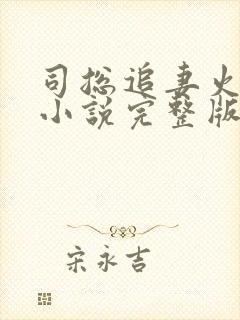 司总追妻火
小说完整版
宋永吉